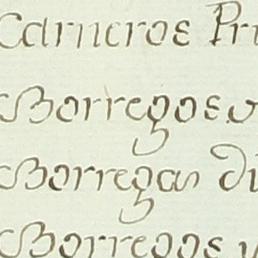 Carneros Pri
Borregos
Borregas di
Borregos